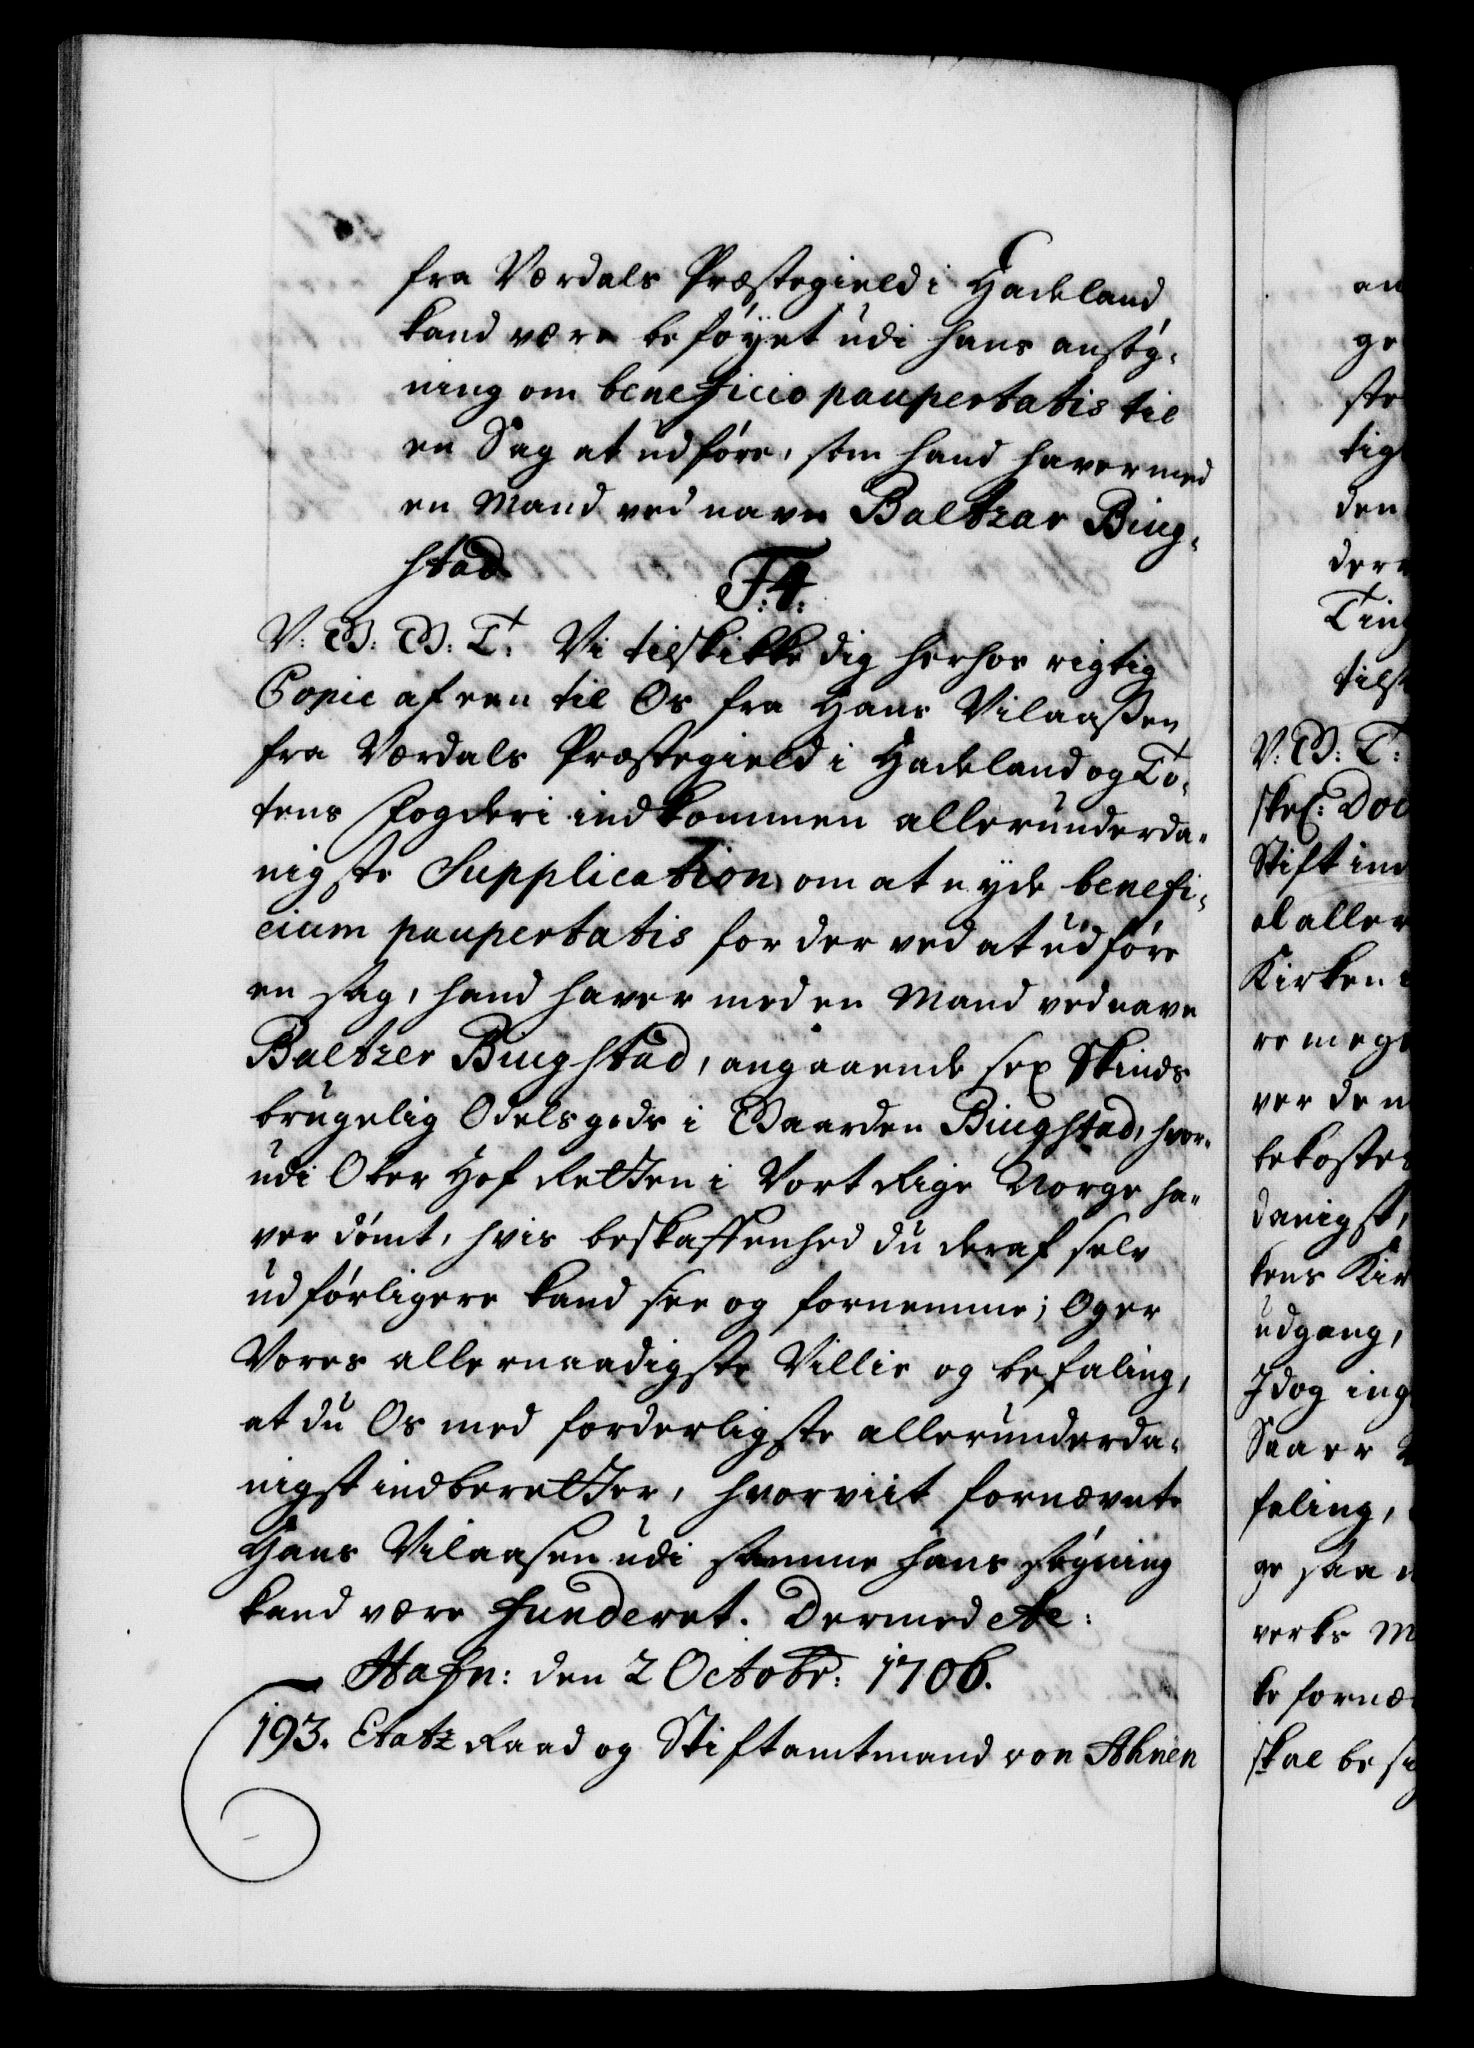 fra Værdals Præstegield i Hadeland
kand være beføyet udi hans ansøg-
ning om beneficio paupertatis til
en Sag at udføre, som hand haver med
en Mand ved navn Baltzar Biug-
stad
F. 4.
V: G: G: T. Vi tilskikke dig herhos rigtig
Copie af een til Os fra Hans Vilaaßen
fra Værdals Præstegield i Hadeland og To-
tens Fogderi indkommen allerunderda-
nigste Supplication om at nyde benefi-
cium paupertatis for derved at udføre
en Sag, hand haver med en Mand ved navn
Baltzer Biugstad, angaaende sex Skinds
brugelig Odelsgods i Gaarden Biugstad, hvor-
udi Ober Hof Retten i Vort Rige Norge ha-
ver dømt, hvis beskaffenhed du deraf selv
udførligere kand see og fornemme; Og er
Vores allernaadigste Villie og befaling,
at du Os med forderligste allerunderda-
nigst indberetter, hvorviit fornævnte
Hans Vilaasen udi samme hans søgning
kand være funderet. Dermed etc:
Hafn: den 2 Octobr: 1706.
193. Etatz Raad og Stiftamtmand von Ahnen
an
ge
ste
tig
den
der
Ting
tils
V: G: T:
skel: Doc
Stift ind
al aller
Kirken
re meg
ver den
bekoste
danigst,
kens Kir
udgang,
Jdog ing
Saa er
faling,
ge saa
verks M
ke fornæ
skal be